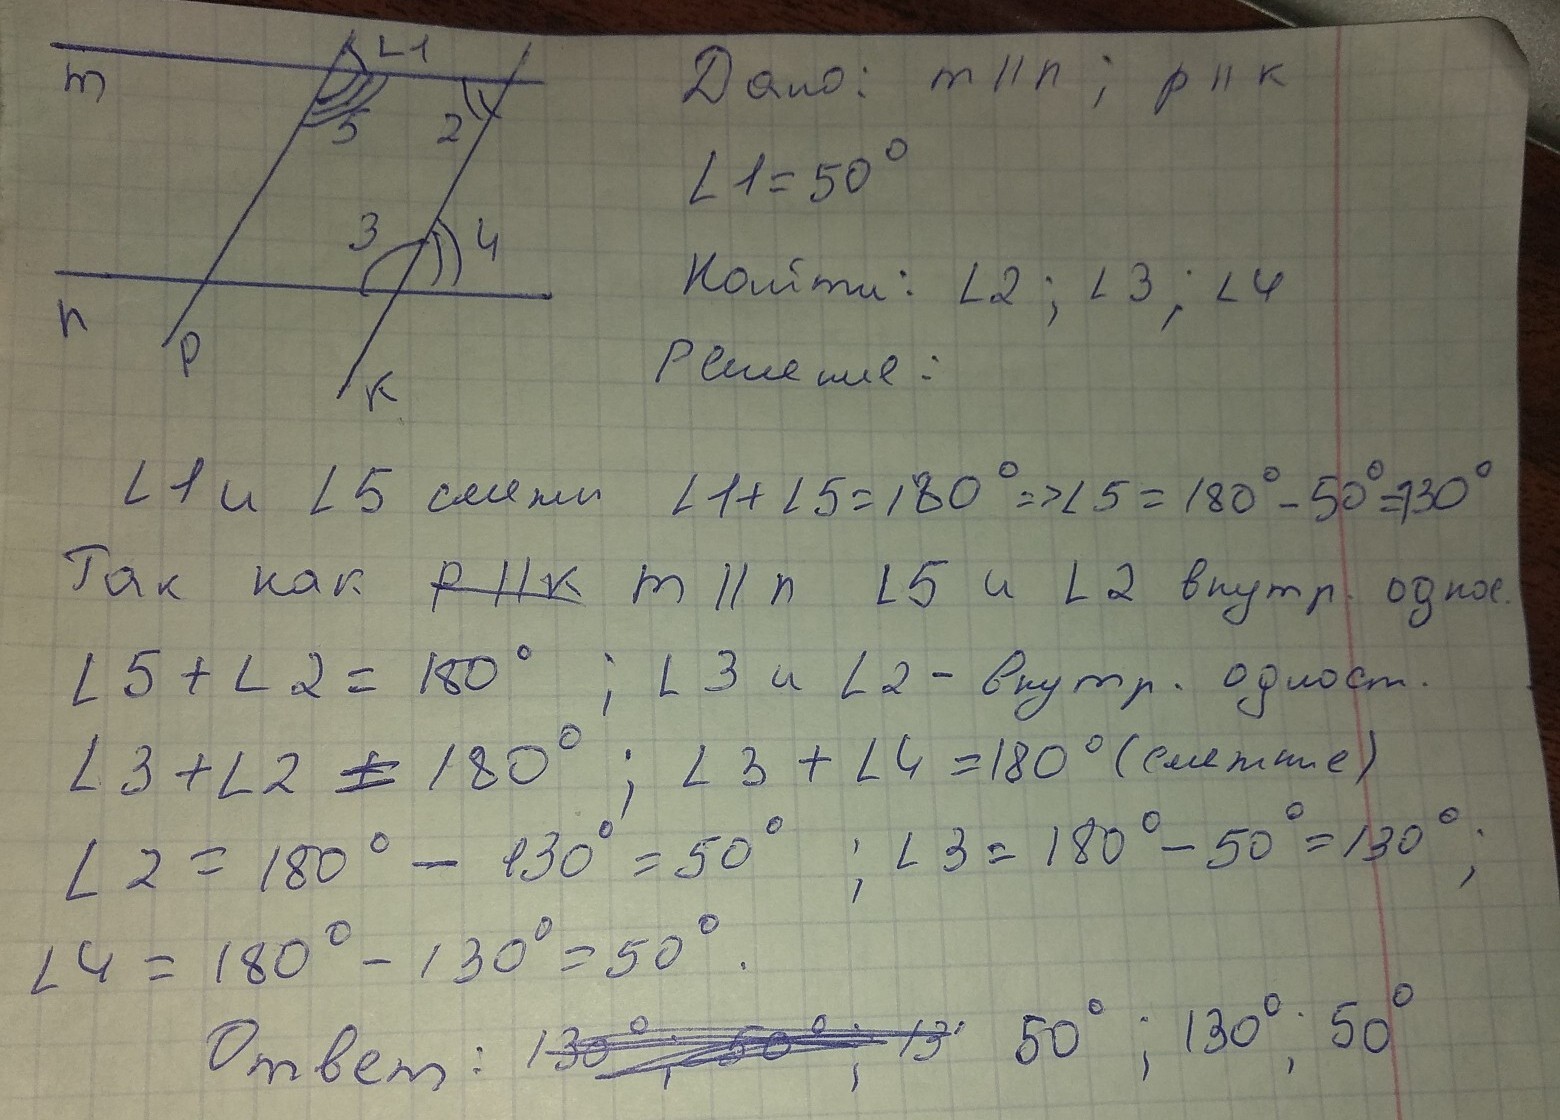 ∠1
m
5
2
3
4
n
p
k
Дано: m || n ; p || k
∠1 = 50°
Найти: ∠2 ; ∠3 ; ∠4
Решение:
∠1 и ∠5 смежн ∠1 + ∠5 = 180° => ∠5 = 180° - 50° = 130°
Так как p || k m || n ∠5 и ∠2 внутр. однос.
∠5 + ∠2 = 180° ; ∠3 и ∠2 - внутр. одност.
∠3 + ∠2 = 180° ; ∠3 + ∠4 = 180° (смежные)
∠2 = 180° - 130° = 50° ; ∠3 = 180° - 50° = 130° ;
∠4 = 180° - 130° = 50° .
Ответ: 130° ; 50° ; 13 50° ; 130° ; 50°